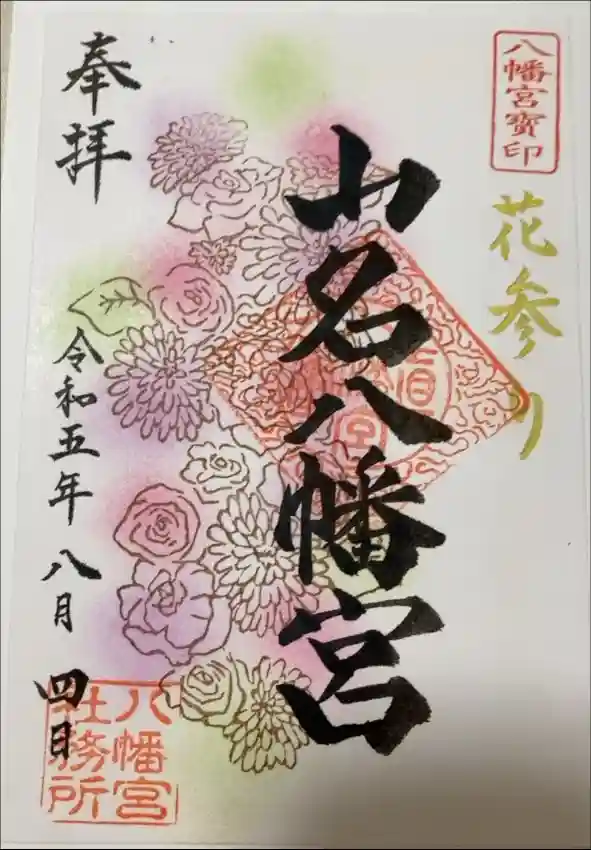 八幡宮寶印
花参り
山名八幡宮
奉拝
令和五年八月四日
八幡宮
社務所